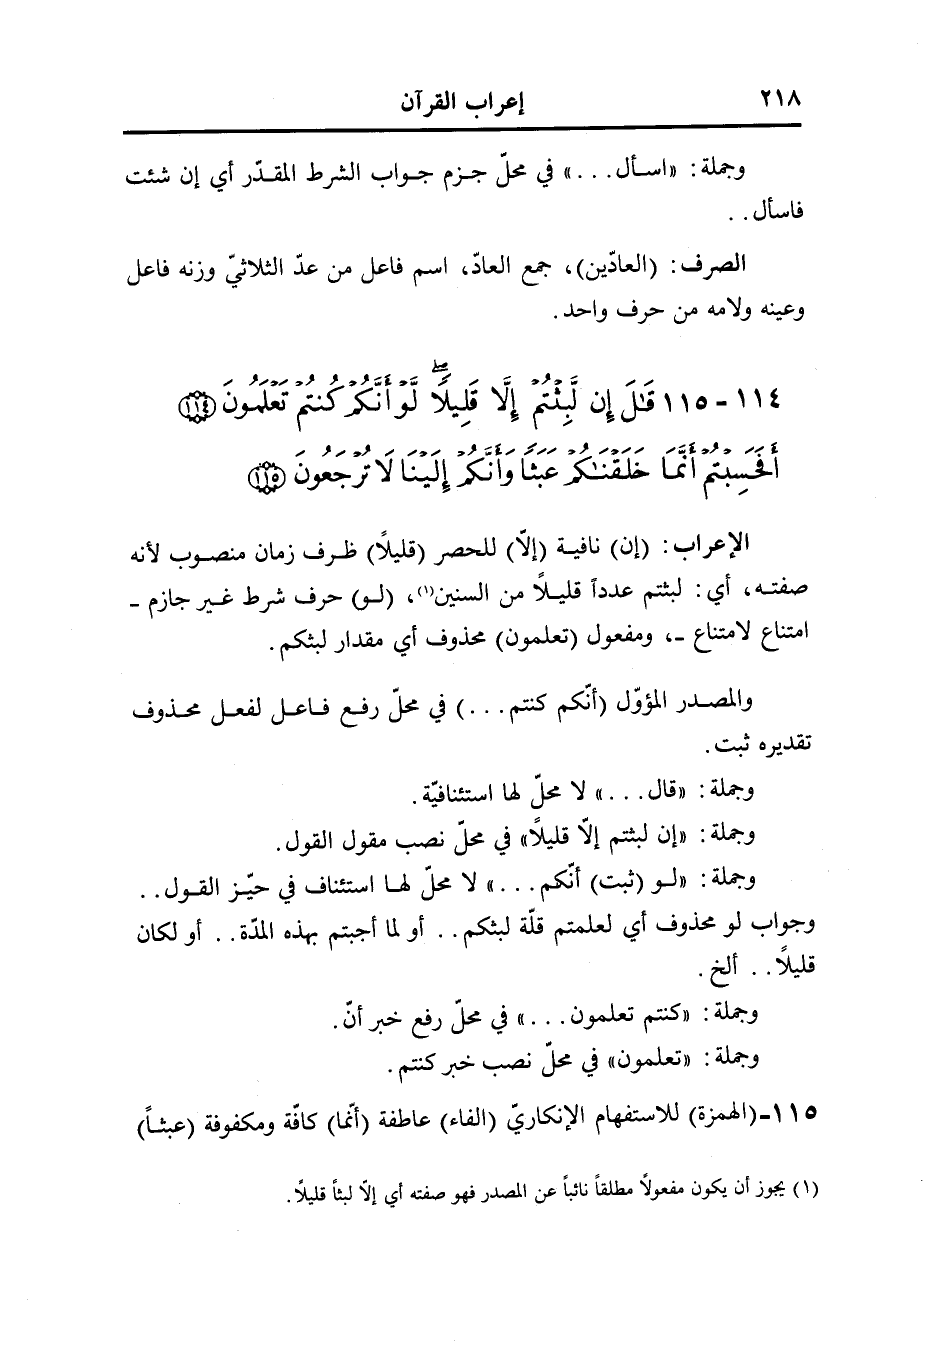 ٢١٨ إعراب القرآن
وجملة: «اسأل...» في محلّ جزم جواب الشرط المقدّر أي إن شئت
فاسأل..
الصرف: (العادّين)، جمع العادّ، اسم فاعل من عدّ الثلاثيّ وزنه فاعل
وعينه ولامه من حرف واحد.
١١٤ - ١١٥ قَٰلَ إِن لَّبِثْتُمْ إِلَّا قَلِيلًا ۖ لَّوْ أَنَّكُمْ كُنتُمْ تَعْلَمُونَ ١١٤
أَفَحَسِبْتُمْ أَنَّمَا خَلَقْنَٰكُمْ عَبَثًا وَأَنَّكُمْ إِلَيْنَا لَا تُرْجَعُونَ ١١٥
الإعراب: (إن) نافية (إلّا) للحصر (قليلًا) ظرف زمان منصوب لأنه
صفته، أي: لبثتم عدداً قليلًا من السنين(١)، (لو) حرف شرط غير جازم -
امتناع لامتناع -، ومفعول (تعلمون) محذوف أي مقدار لبثكم.
والمصدر المؤوّل (أنّكم كنتم...) في محلّ رفع فاعل لفعل محذوف
تقديره ثبت.
وجملة: «قال...» لا محلّ لها استئنافيّة.
وجملة: «إن لبثتم إلّا قليلًا» في محلّ نصب مقول القول.
وجملة: «لو (ثبت) أنّكم...» لا محلّ لها استئناف في حيّز القول..
وجواب لو محذوف أي لعلمتم قلّة لبثكم.. أو لما أجبتم بهذه المدّة.. أو لكان
قليلًا.. ألخ.
وجملة: «كنتم تعلمون...» في محلّ رفع خبر أنّ.
وجملة: «تعلمون» في محلّ نصب خبر كنتم.
١١٥-(الهمزة) للاستفهام الإنكاريّ (الفاء) عاطفة (أنّما) كافّة ومكفوفة (عبثاً)
(١) يجوز أن يكون مفعولًا مطلقاً نائباً عن المصدر فهو صفته أي إلّا لبثاً قليلًا.